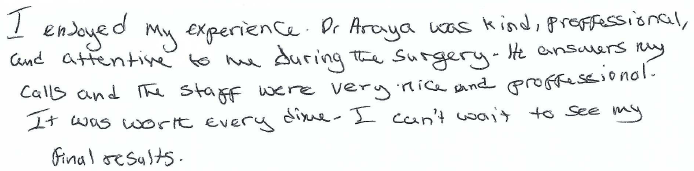 I enjoyed my experience. Dr Araya was kind, proffessional,
and attentive to me during the surgery. He answers my
calls and the staff were very nice and proffessional.
It was worth every dime. I can't wait to see my
final results.